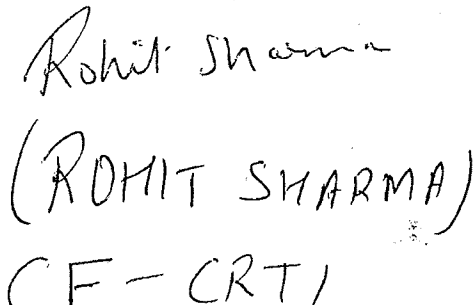 Rohit Sharma
(ROHIT SHARMA)
CF-CRTI